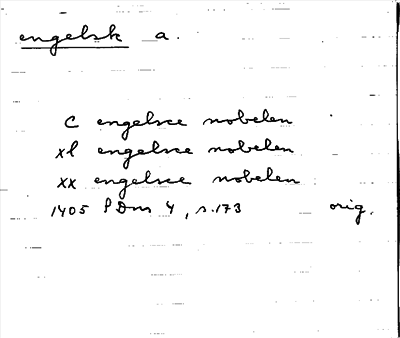 engelsk a.
C engelsce nobelen
xl engelsce nobelen
xx engelsce nobelen
1405 PDm 4, s.173 orig.